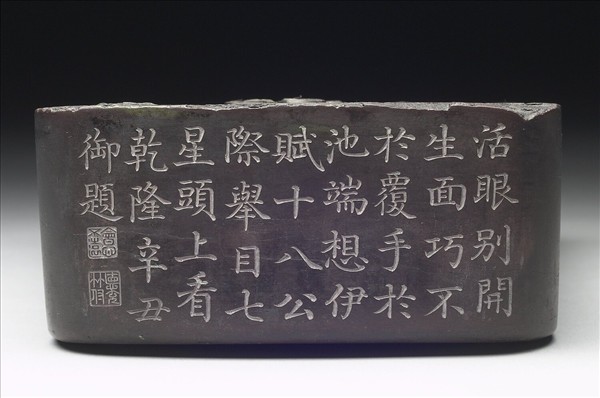 活眼別開
生面巧不
於覆手於
池端想伊
賦十八公
際舉目七
星頭上看
乾隆辛丑
御題
會心不遠
德充符